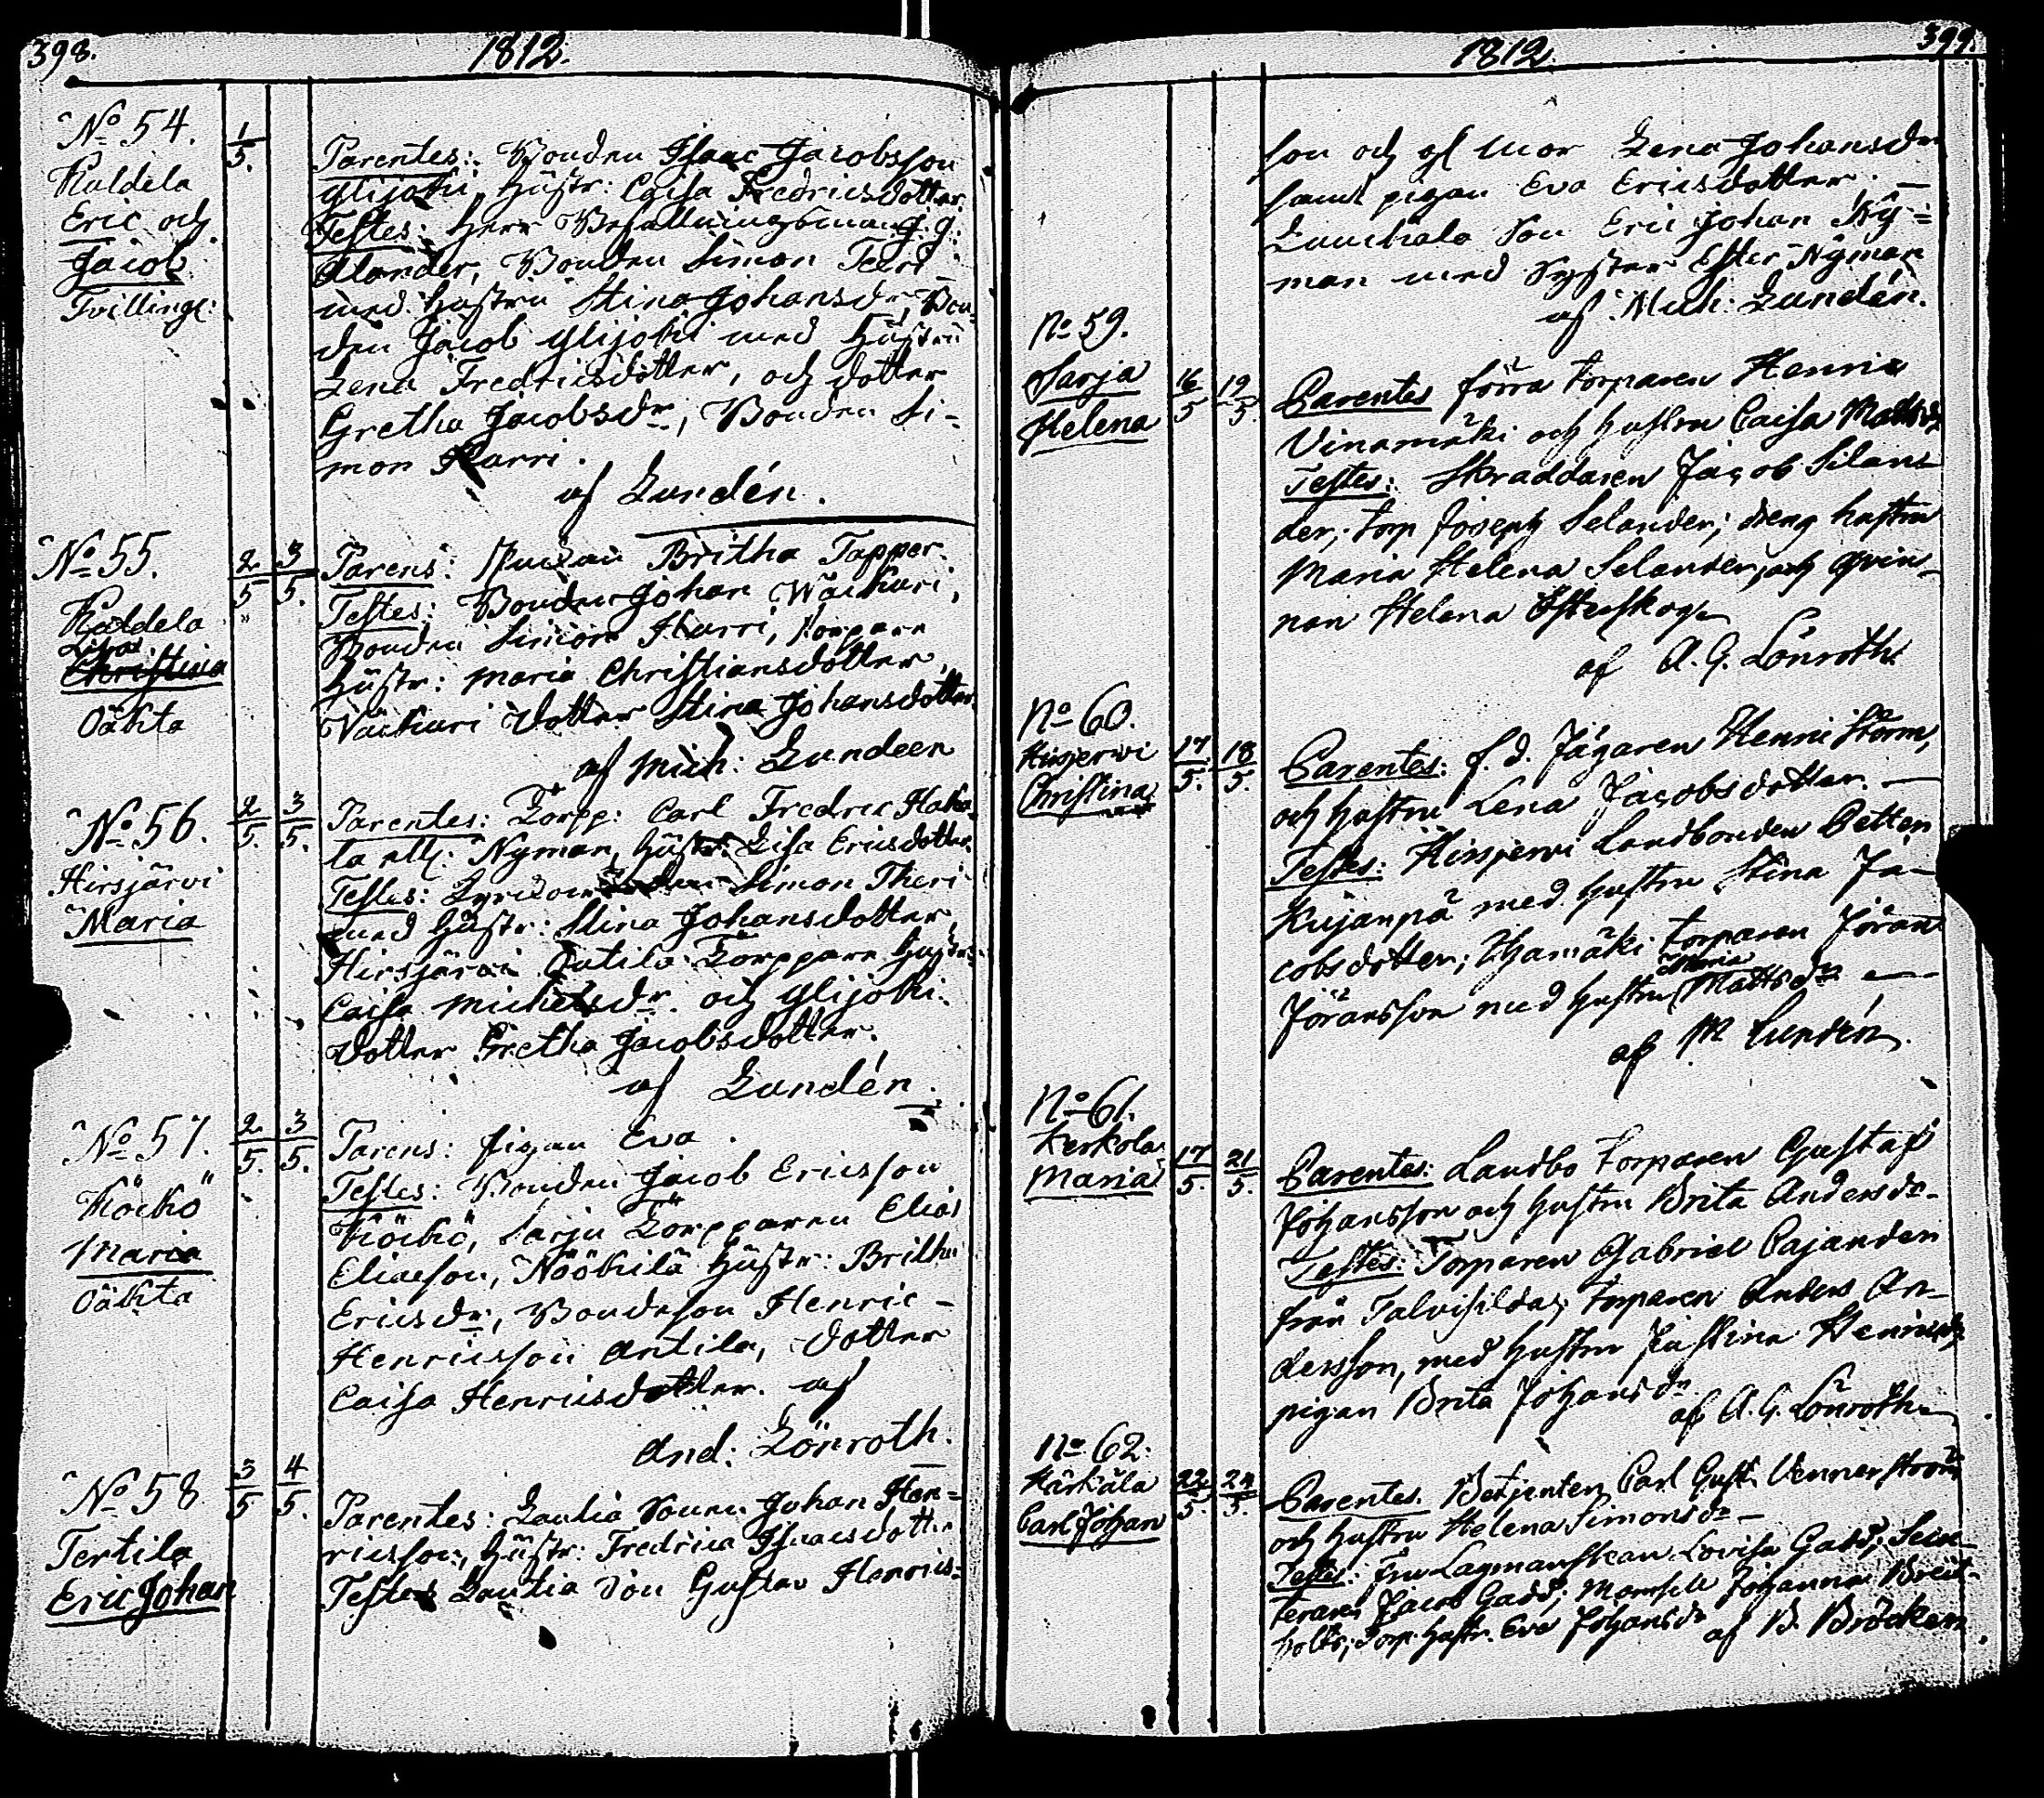 398.
1812.
No 54.
1/5.
Kuldela
Eric och
Jacob
Tvilling:
Parentes: Bonden Isaac Jacobsson
Ylijoki, Hustr: Caisa Fredricsdotter.
Testes: Herr Befallningsman J. G.
Alander, Bonden Simon Teeri
med hustru Stina Johansdr, Bon-
den Jacob Ylijoki med Hustru
Lena Fredricsdotter, och dotter
Gretha Jacobsdr, Bonden Si-
mon Harri.
af Lundén.
No 55.
2/5 3/5.
Kuldela
Lisa
Christina
Oäkta
Parens: Britha Tapper.
Testes: Bonden Johan Wäckari,
Bonden Simon Harri, Torpare
Hustr: Maria Christiansdotter,
Wäckari dotter Stina Johansdotter.
af Mich: Lundeen
No 56.
2/5. 3/5.
Hirsjärvi
Maria
Parentes: Torpp: Carl Fredric Haka-
la ell: Nyman, Hustr: Lisa Ericsdotter.
Testes: Simon Theri
med Hustr: Stina Johansdotter,
Hirsjärvi Antila Torppare Hustr:
Caisa Michelsdr. och Ylijoki
dotter Gretha Jacobsdotter.
af Lundén.
No 57.
2/5. 3/5.
Köckö
Maria
Oäkta
Parens: Pigan Eva.
Testes: Bonden Jacob Ericsson
Köckö, Sarju Torpparen Elias
Eliaeson, Nöökilä Hustr: Britha
Ericsdr, Bondeson Henric
Henricsson Antila, dotter
Caisa Henricsdotter. af
And: Lönroth.
No 58
3/5 4/5.
Tertila
Eric Johan
Parentes: Lautia Sonen Johan Hen-
ricsson, Hustr: Fredrica Isaacsdotter
Testes Lautia Son Gustav Henrics-
1812.
399.
son och gl mor Lena Johansdr
samt pigan Eva Ericsdotter. —
Son Eric Johan Ny-
man med Syster Ester Nyman
af Mich: Lundén.
No 59.
Sarja
Helena
16/5 19/5.
Parentes förra torparen Henric
Vinamäki och hustru Caisa Mattsdr
Testes: Skraddaren Jacob Silan-
der; torp Joseph Selander; dreng hustru
Maria Helena Selander, och qvin-
nan Helena Österskog
af A. G. Lönroth.
No 60.
Hirsjerwi
Christina
17/5. 18/5.
Parentes: f. d. Jägaren Henric Storm,
och hustru Lena Jacobsdotter. —
Testes: Hirsjerwi Landbonden Petter
Kujanpä med hustru Stina Ja-
cobsdotter; torparen Jöran
Maria
Jöransson med hustru Mattsdr —
af M Lundén.
No 61.
Kerkola
Maria
17/5. 21/5.
Parentes: Landbo torparen Gustaf
Johansson och hustru Brita Andersdr.
Testes: Torparen Gabriel Cajander
från Talvisilda; torparen Anders An-
dersson, med hustru Justina Henricsdr
pigan Brita Johansdr
af A. G. Lönroth.
No 62.
Härkälä
Carl Johan
22/5. 24/5.
Parentes. Betjenten Carl Gust. Vennerström
och hustru Helena Simonsdr —
Testes: Fru Lagmanskan Lovisa Gadd;
Jacob Gadd; Mamsell Johanna Breit-
holtz; Torp. hustr. Eva Johansdr af B. Bröcker.